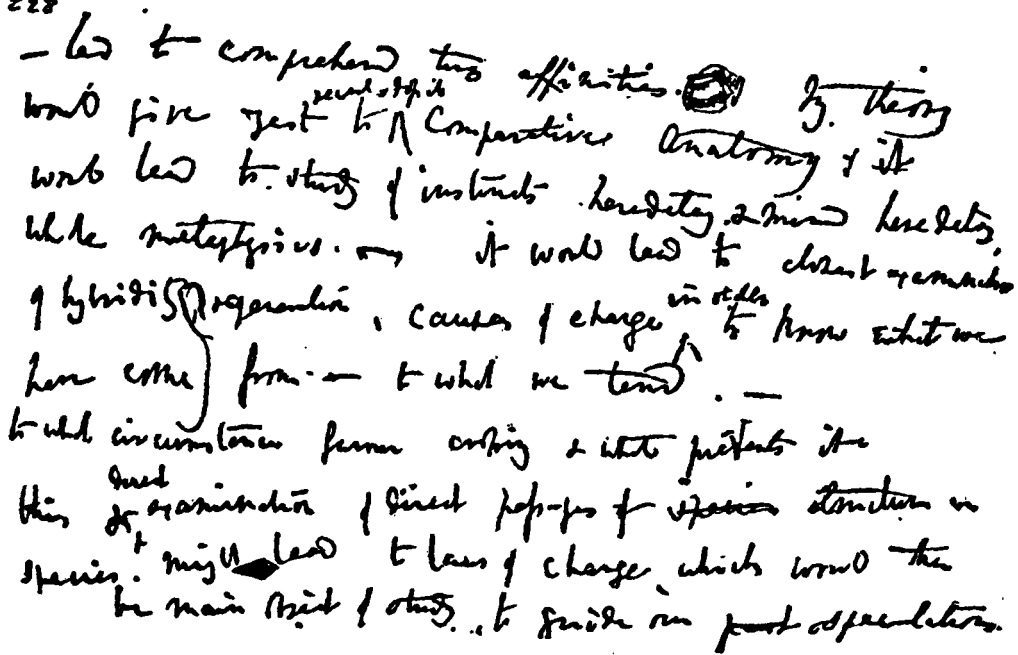 228
– led to comprehend true affinities. My theory
would give zest to recent & fossil Comparative Anatomy, & it
would lead to study of instincts, heredetary. & mind heredetary,
whole metaphysics. – it would lead to closest examination
of hybridity regeneration, causes of change in order to know what we
have come from – & to what we tend. –
to what circumstances favour crossing & what prevents it –
this & direct examination of direct passages of species structure in
species. might lead to laws of change, which would then
be main object of study, to guide our past speculations